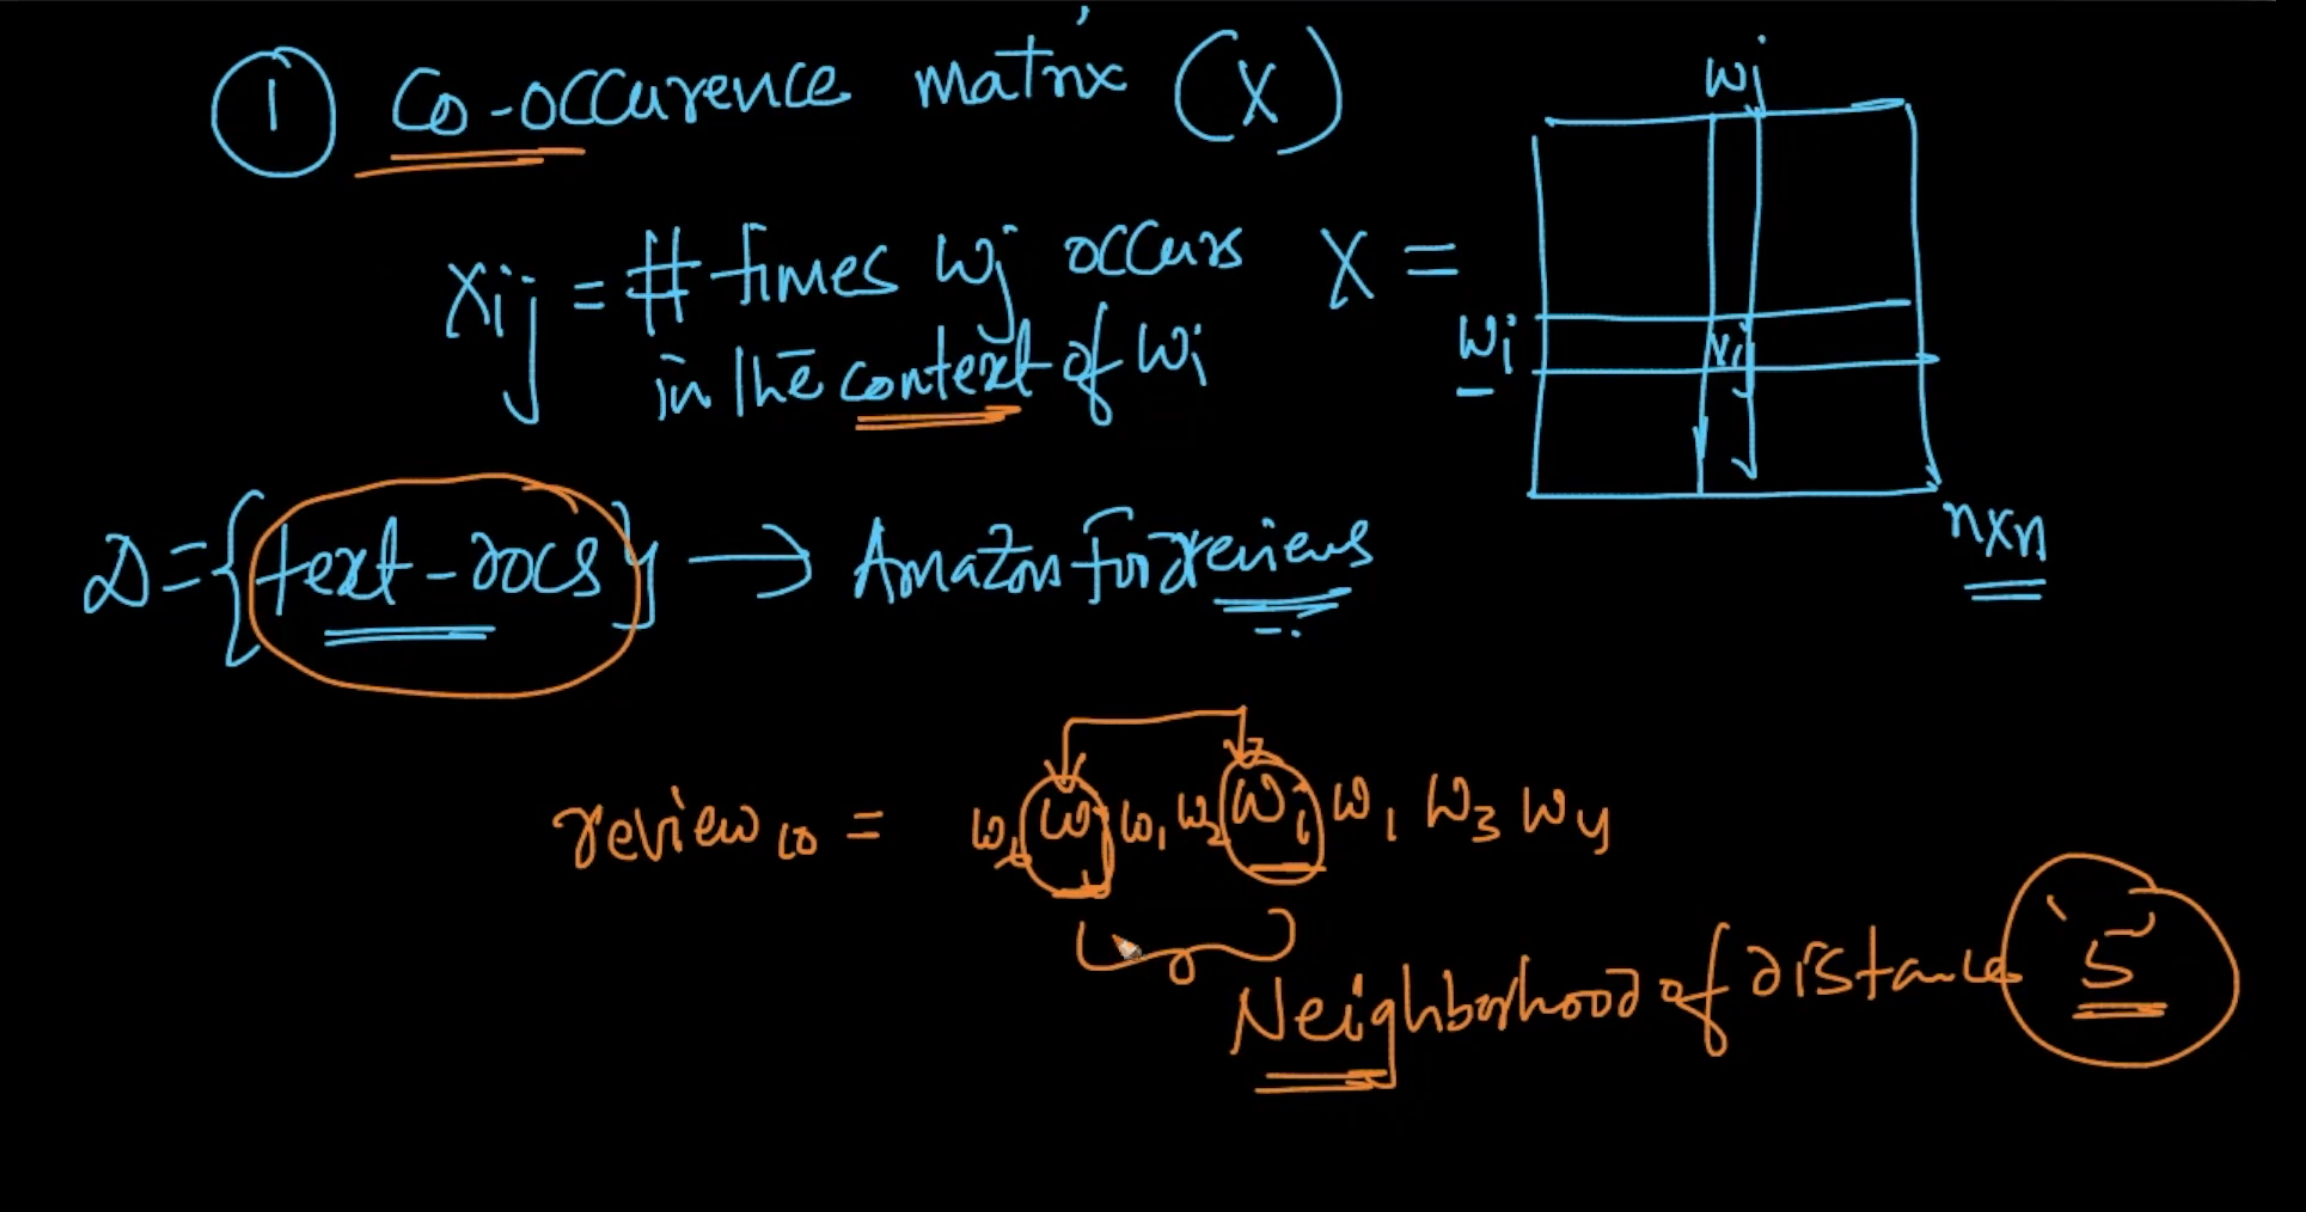 1 Co-occurence matrix (X)
Xij = # times wj occurs
in the context of wi
X =
wj
wi
Xij
nxn
D = {text-docs} → Amazon Food reviews
review10 = wj w1 w2 wi w1 w3 w4
Neighborhood of distance 5